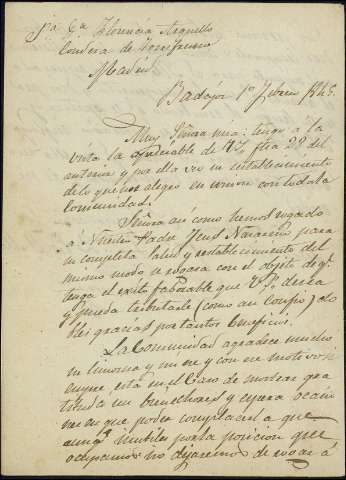 Sra. Da. Florencia Arguello
Condesa de
Madrid
Badajoz 1º Febrero 1845.
Muy Señora mia: tengo a la
vista la apreciable de V. fha 29 del
anterior y por ella veo su restablecimiento
de lo que nos alegro en union con toda la
Comunidad.
Señora asi como hemos rogado
á Nuestro Padre Jesus Nazareno para
su completa salud y restablecimiento del
mismo modo se rogara con el objeto de qe.
tenga el exito favorable que V. desea
y pueda tributarle (como asi confio)
gracias por tantos beneficios.
La Comunidad agradece mucho
su limosna y con ese motivo
está en el caso de mostrar gra
titud á su bienechora y espera ocasio
nes en que poder complacerla que
aunqe. inutiles por la posicion que
ocupamos no dejaremos de rogar á